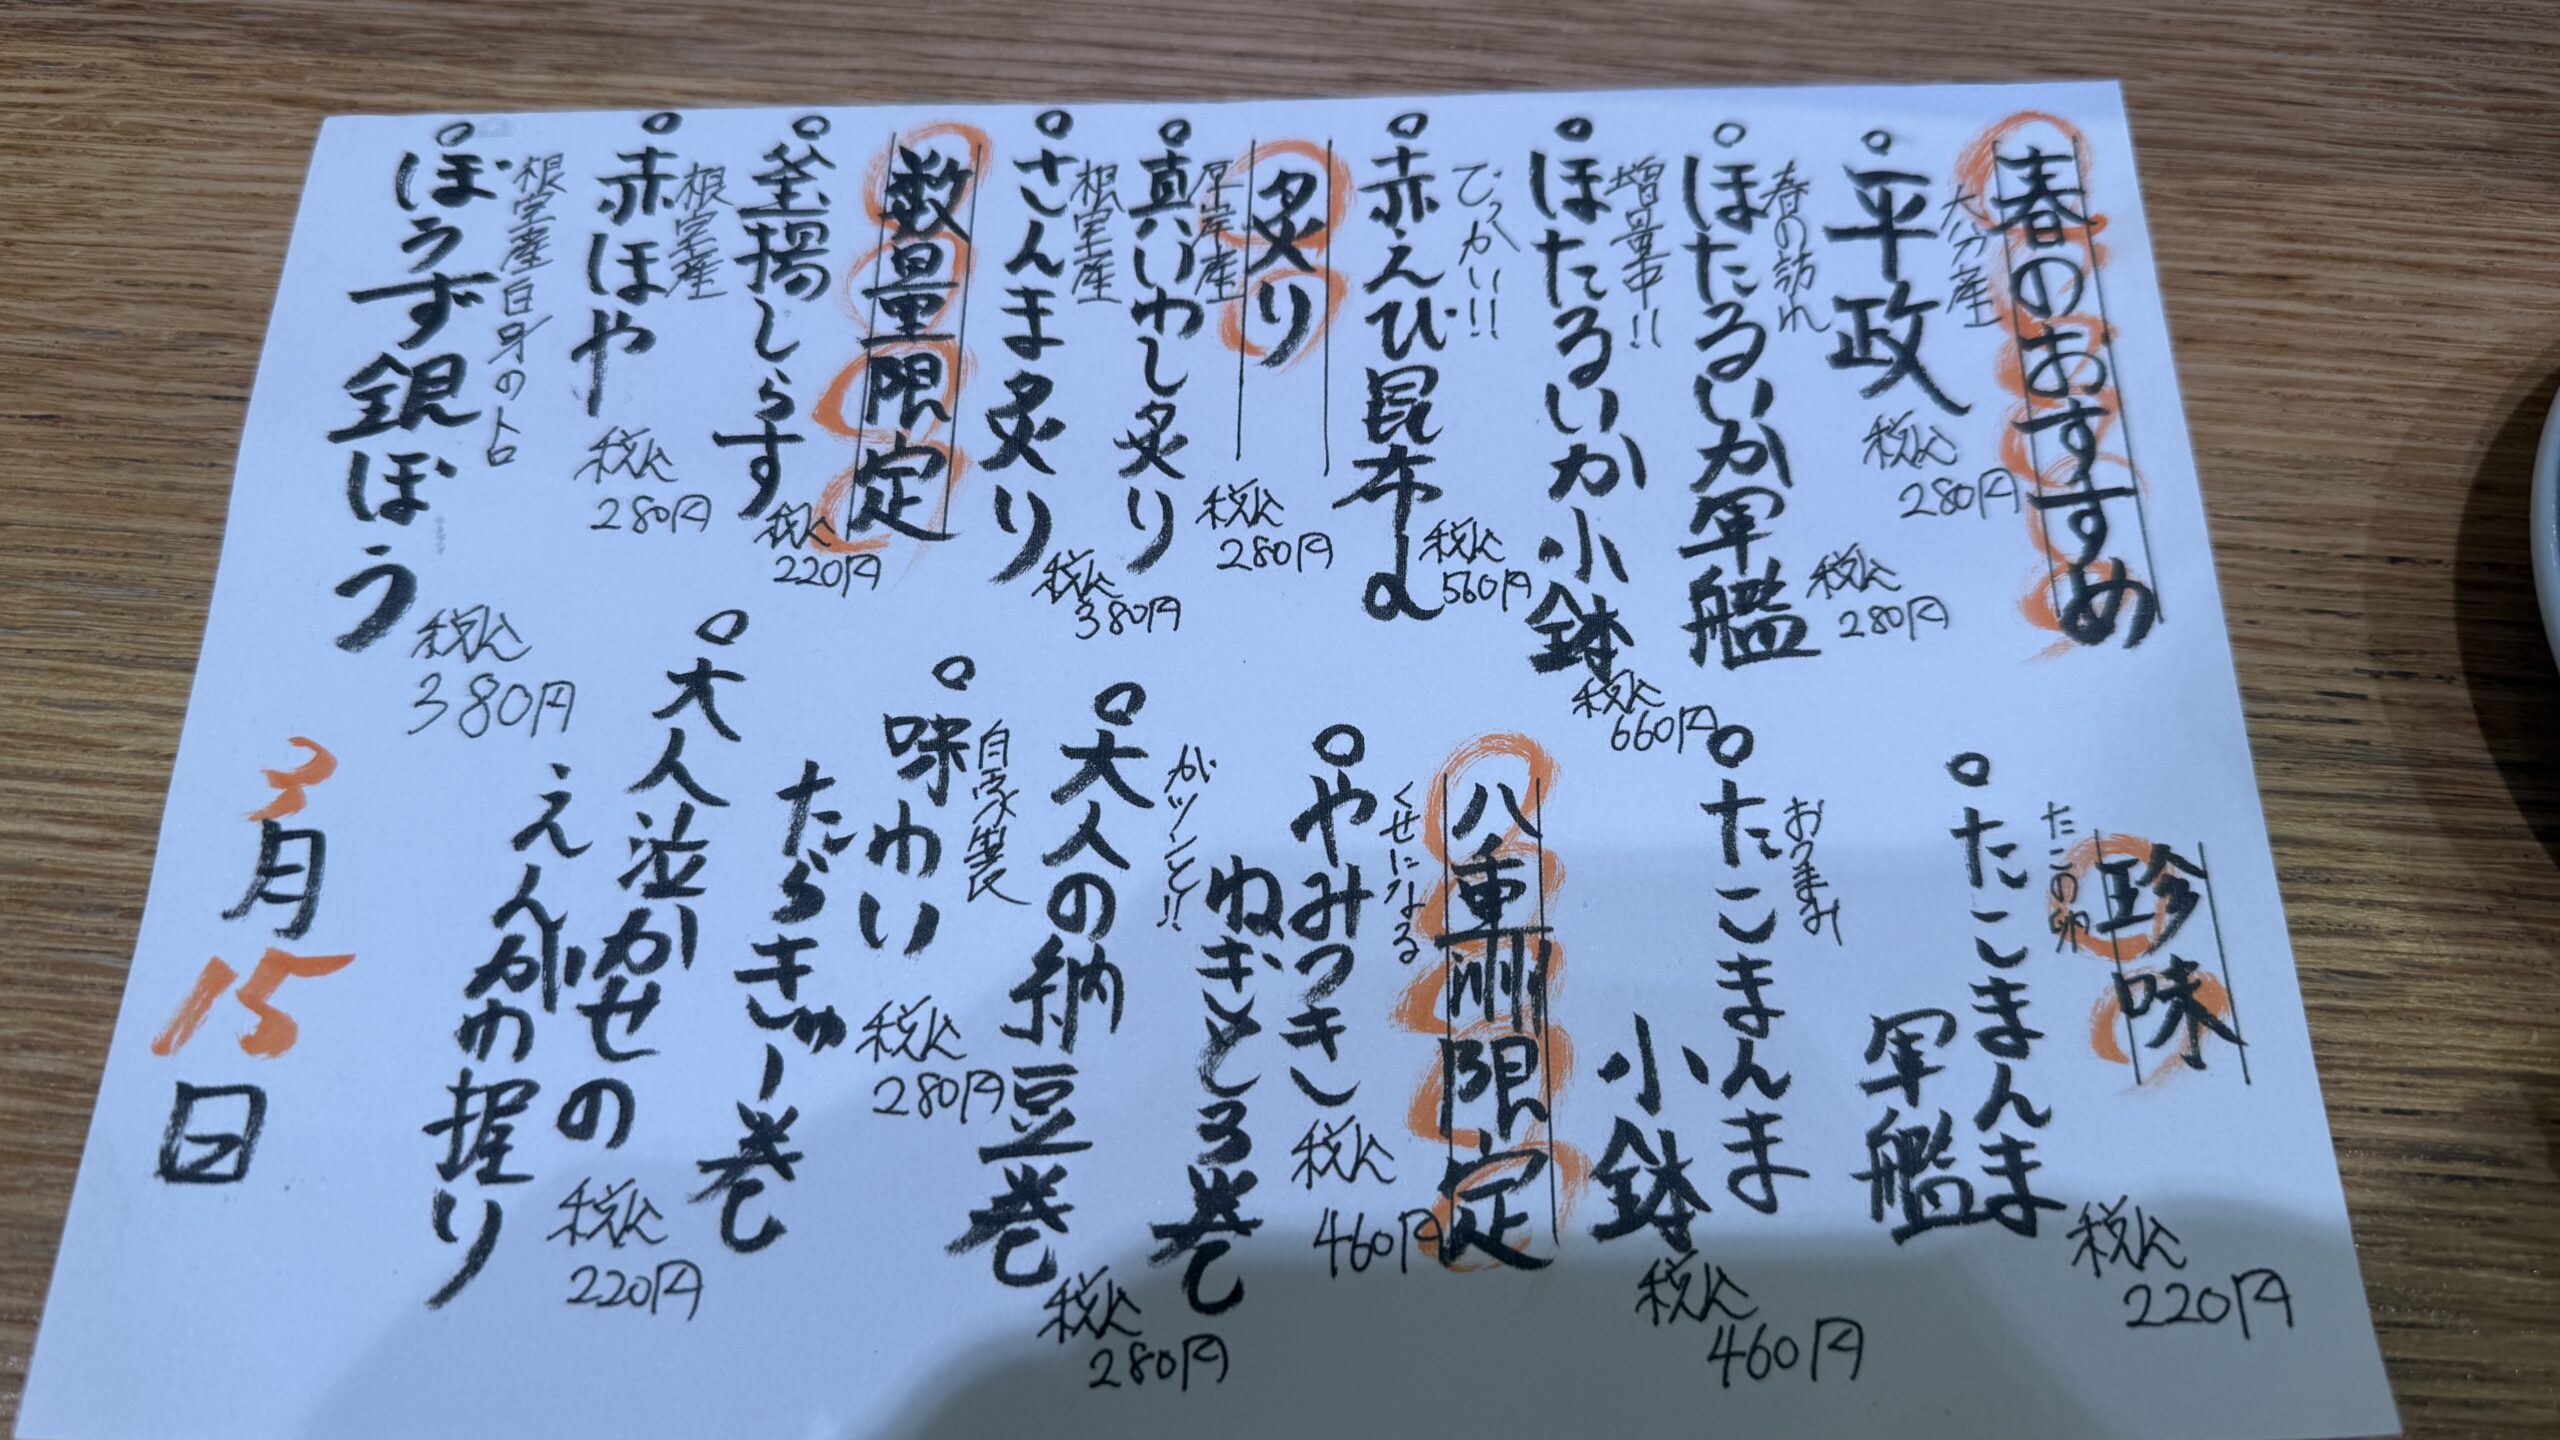 春のおすすめ
大分産
平政
税込
280円
春の訪れ
ほたるいか軍艦
税込
280円
増量中!!
ほたるいか小鉢
税込
660円
でっかい!!
赤えび昆布〆
税込
560円
炙り
厚岸産
真いわし炙り
税込
280円
根室産
さんま炙り
税込
380円
数量限定
釜揚しらす
税込
220円
根室産
赤ほや
税込
280円
根室産白身のトロ
ぼうず銀ぽう
税込
380円
珍味
たこの卵
たこまんま
軍艦
税込
220円
おつまみ
たこまんま
小鉢
税込
460円
八重洲限定
くせになる
やみつき
ねぎとろ巻
税込
460円
ガツンと!!
大人の納豆巻
税込
280円
自家製
味わい
たらきゅー巻
税込
280円
大人泣かせの
えんがわ握り
税込
220円
3月15日